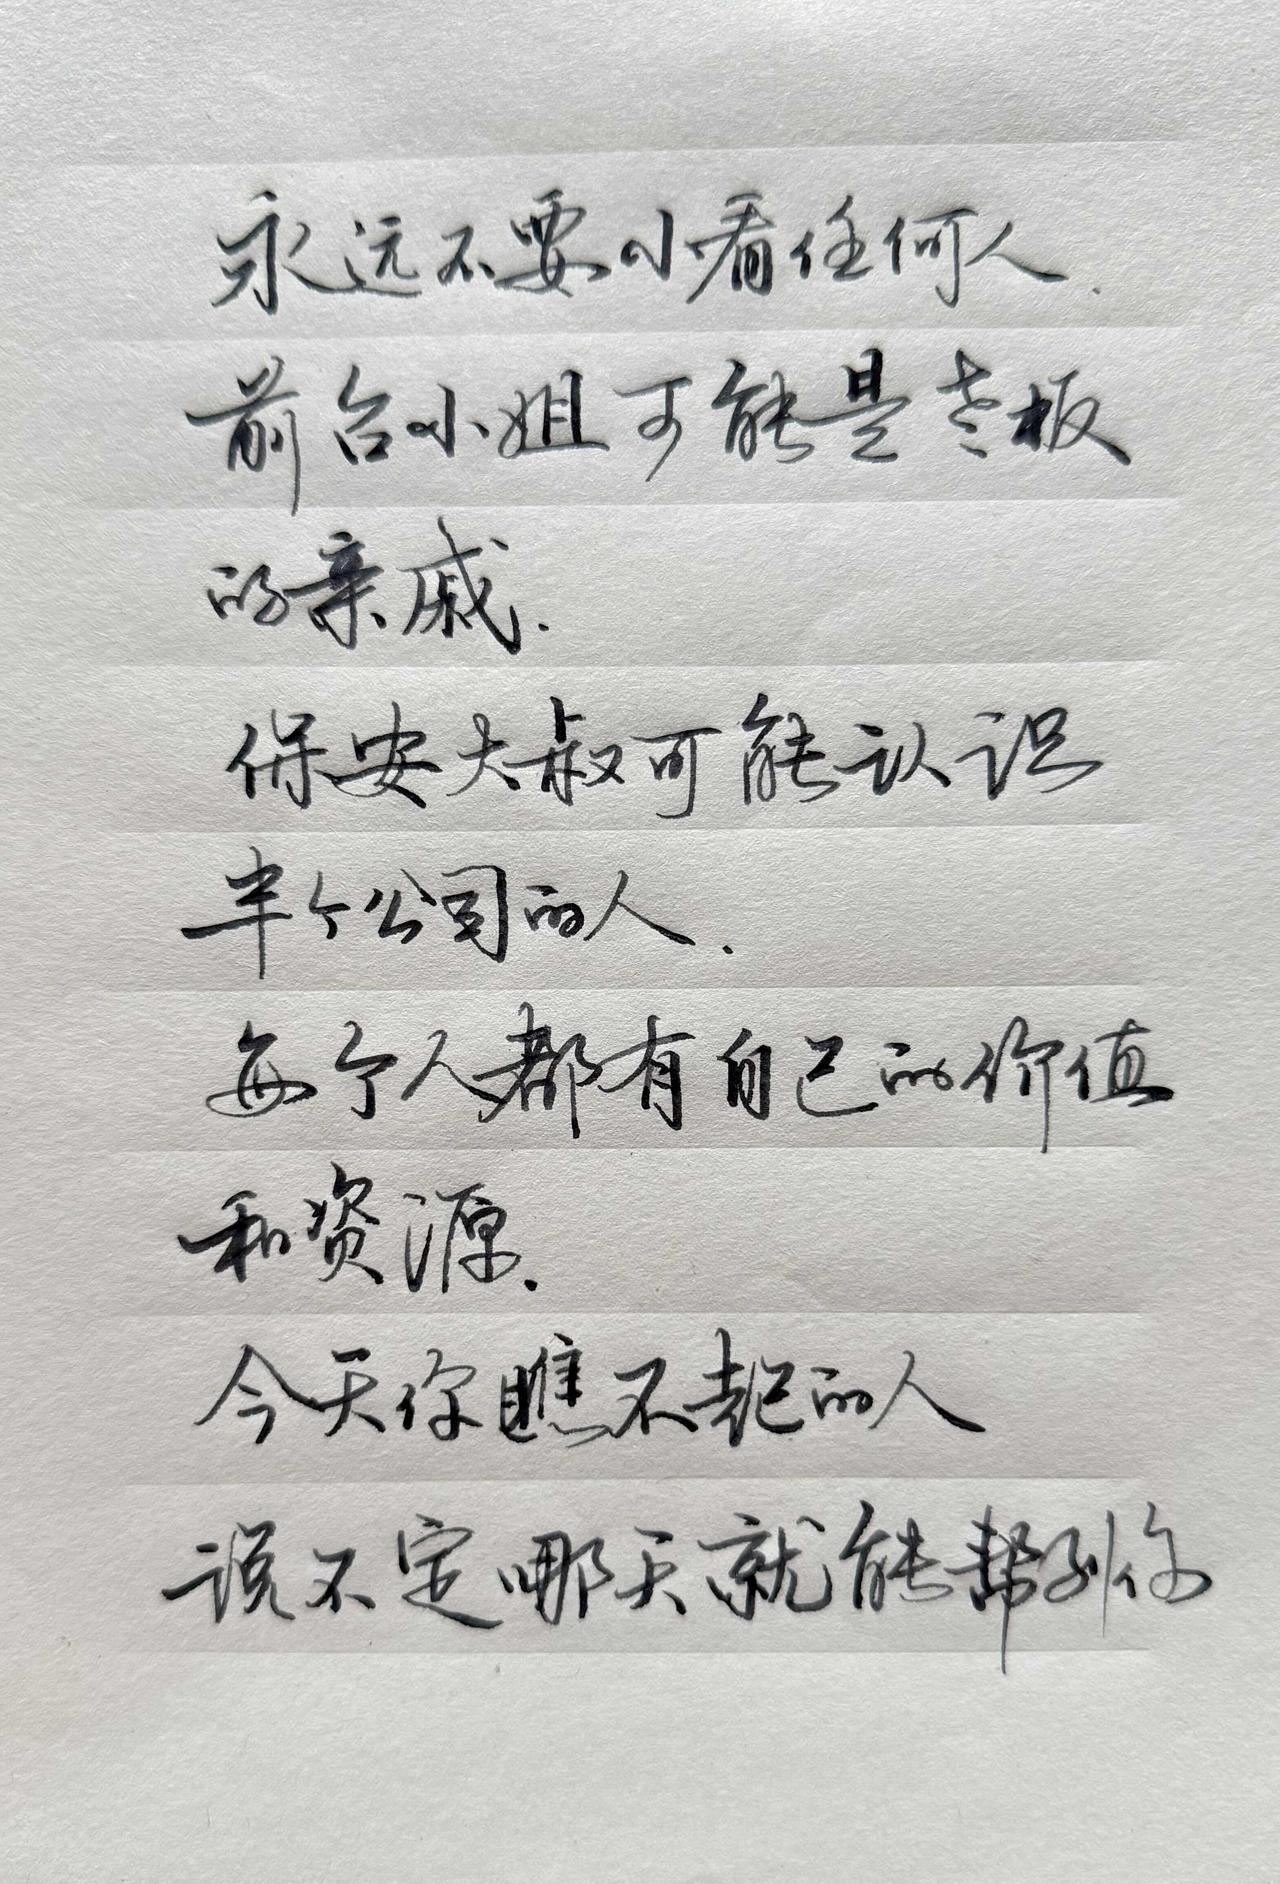 永远不要小看任何人.
前台小姐可能是老板
的亲戚.
保安大叔可能认识
半个公司的人.
每个人都有自己的价值
和资源.
今天你瞧不起的人
说不定哪天就能帮到你